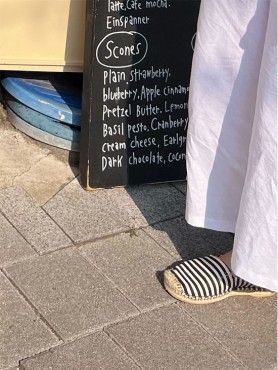 latte, Cafe mocha.
Einspanner
Scones
Plain, strawberry.
blueberry. Apple cinname
Pretzel Butter. Lemon
Basil pesto. Cranberry
cream cheese, Earlgr
Dark chocolate, cocon